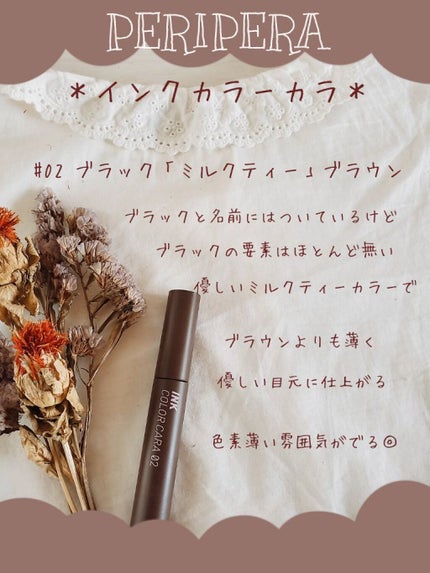 PERIPERA
＊インクカラーカラ＊
#02 ブラック「ミルクティー」ブラウン
ブラックと名前にはついているけど
ブラックの要素はほとんど無い
優しいミルクティーカラーで
ブラウンよりも薄く
優しい目元に仕上がる
色素薄い雰囲気がでる◎
INK
COLOR CARA 02